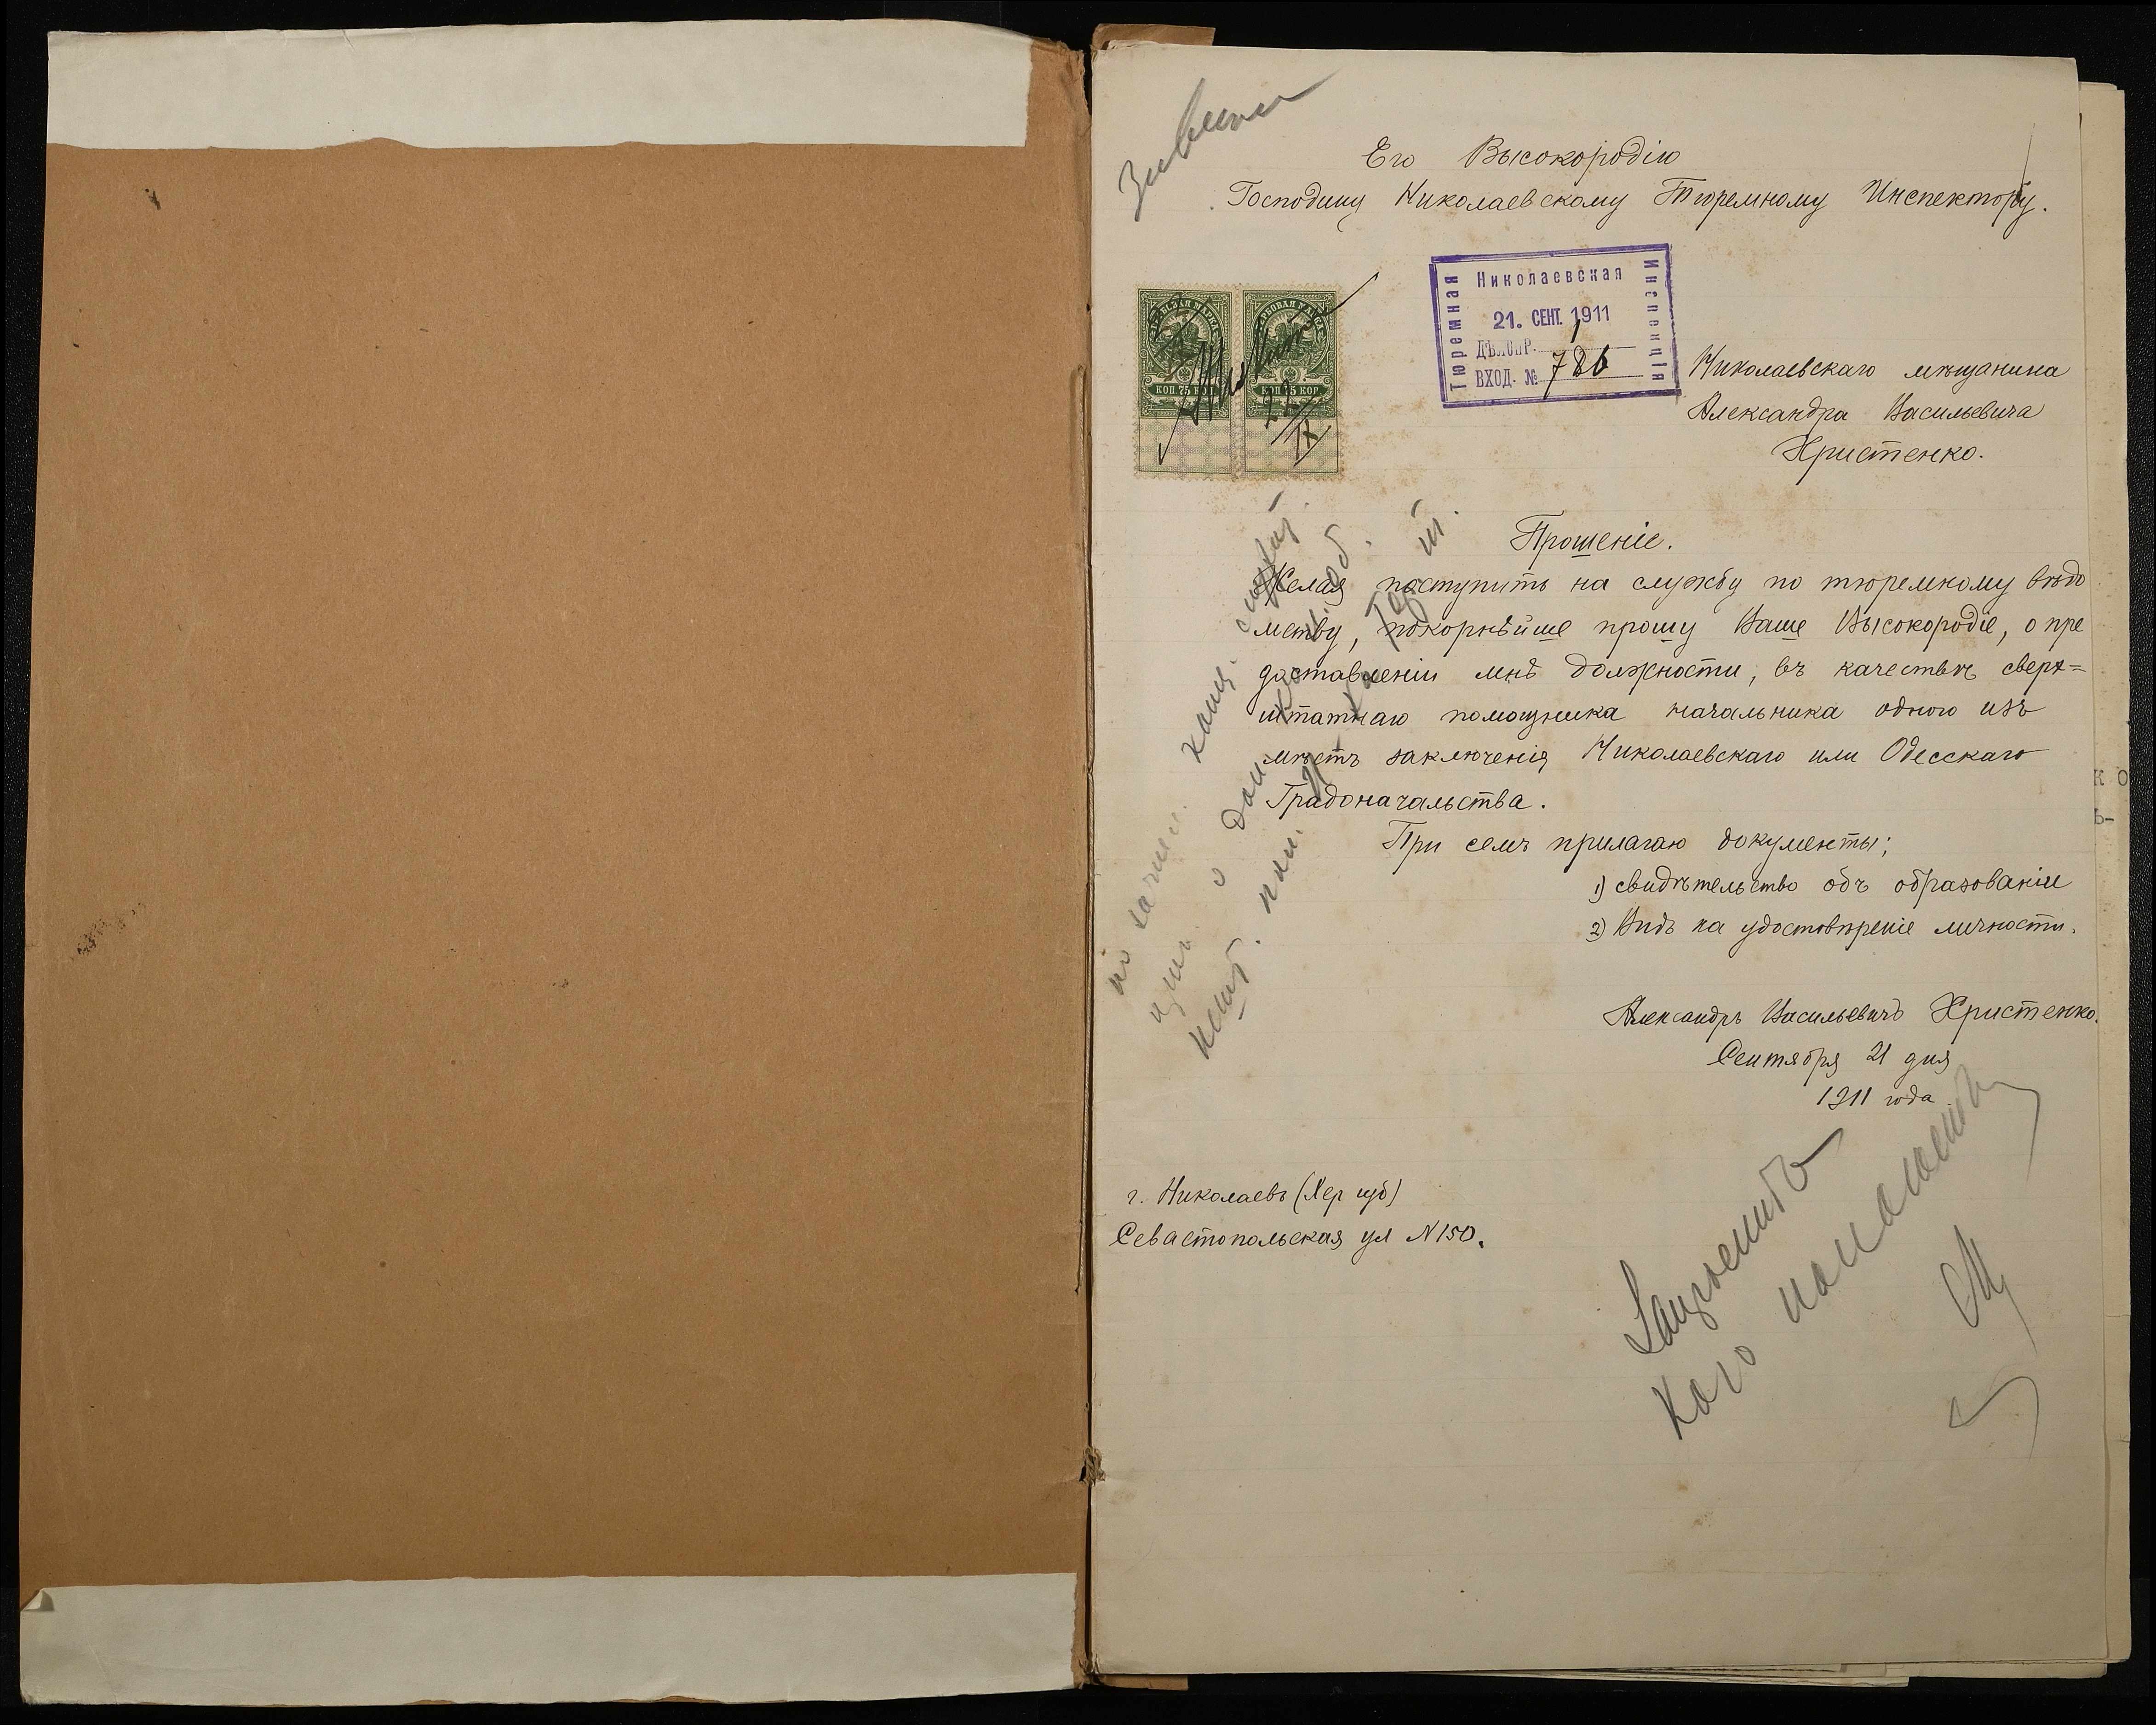 Его Высокородію
Господину Николаевскому Тюремному Инспектору.
ГЕРБОВАЯ МАРКА
КОП 75 КОП
ГЕРБОВАЯ МАРКА
КОП 75 КОП
22/IX
Тюремная
Николаевская
Инспекція
21. СЕНТ. 1911
ДѢЛОПР.
ВХОД. № 786
Николаевскаго мѣщанина
Александра Васильевича
Христенко.
Прошеніе.
Желая поступить на службу по тюремному вѣдо
мству, покорнѣйше прошу Ваше Высокородіе, о пре
доставленіи мнѣ должности, въ качествѣ сверх=
штатнаго помощника начальника одного изъ
мѣстъ заключенія Николаевскаго или Одесскаго
Градоначальства.
При семъ прилагаю документы;
1) свидѣтельство объ образованіи
2) Видъ на удостовѣреніе личности.
Александръ Васильевичъ Христенко.
Сентября 21 дня
1911 года
г. Николаевъ (Хер губ)
Севастопольская ул N 150.